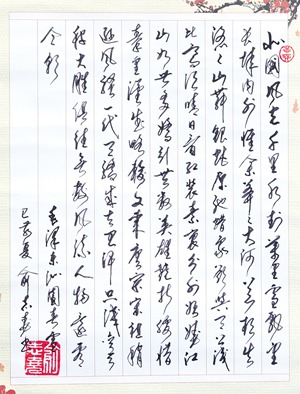 北国风光千里冰封万里雪飘望
长城内外惟余莽莽大河上下顿失
滔滔山舞银蛇原驰蜡象欲与天公试
比高须晴日看红装素裹分外妖娆江
山如此多娇引无数英雄竞折腰惜
秦皇汉武略输文采唐宗宋祖稍
逊风骚一代天骄成吉思汗只识弯弓
射大雕俱往矣数风流人物还看
今朝
毛泽东沁园春雪
己亥夏俞志